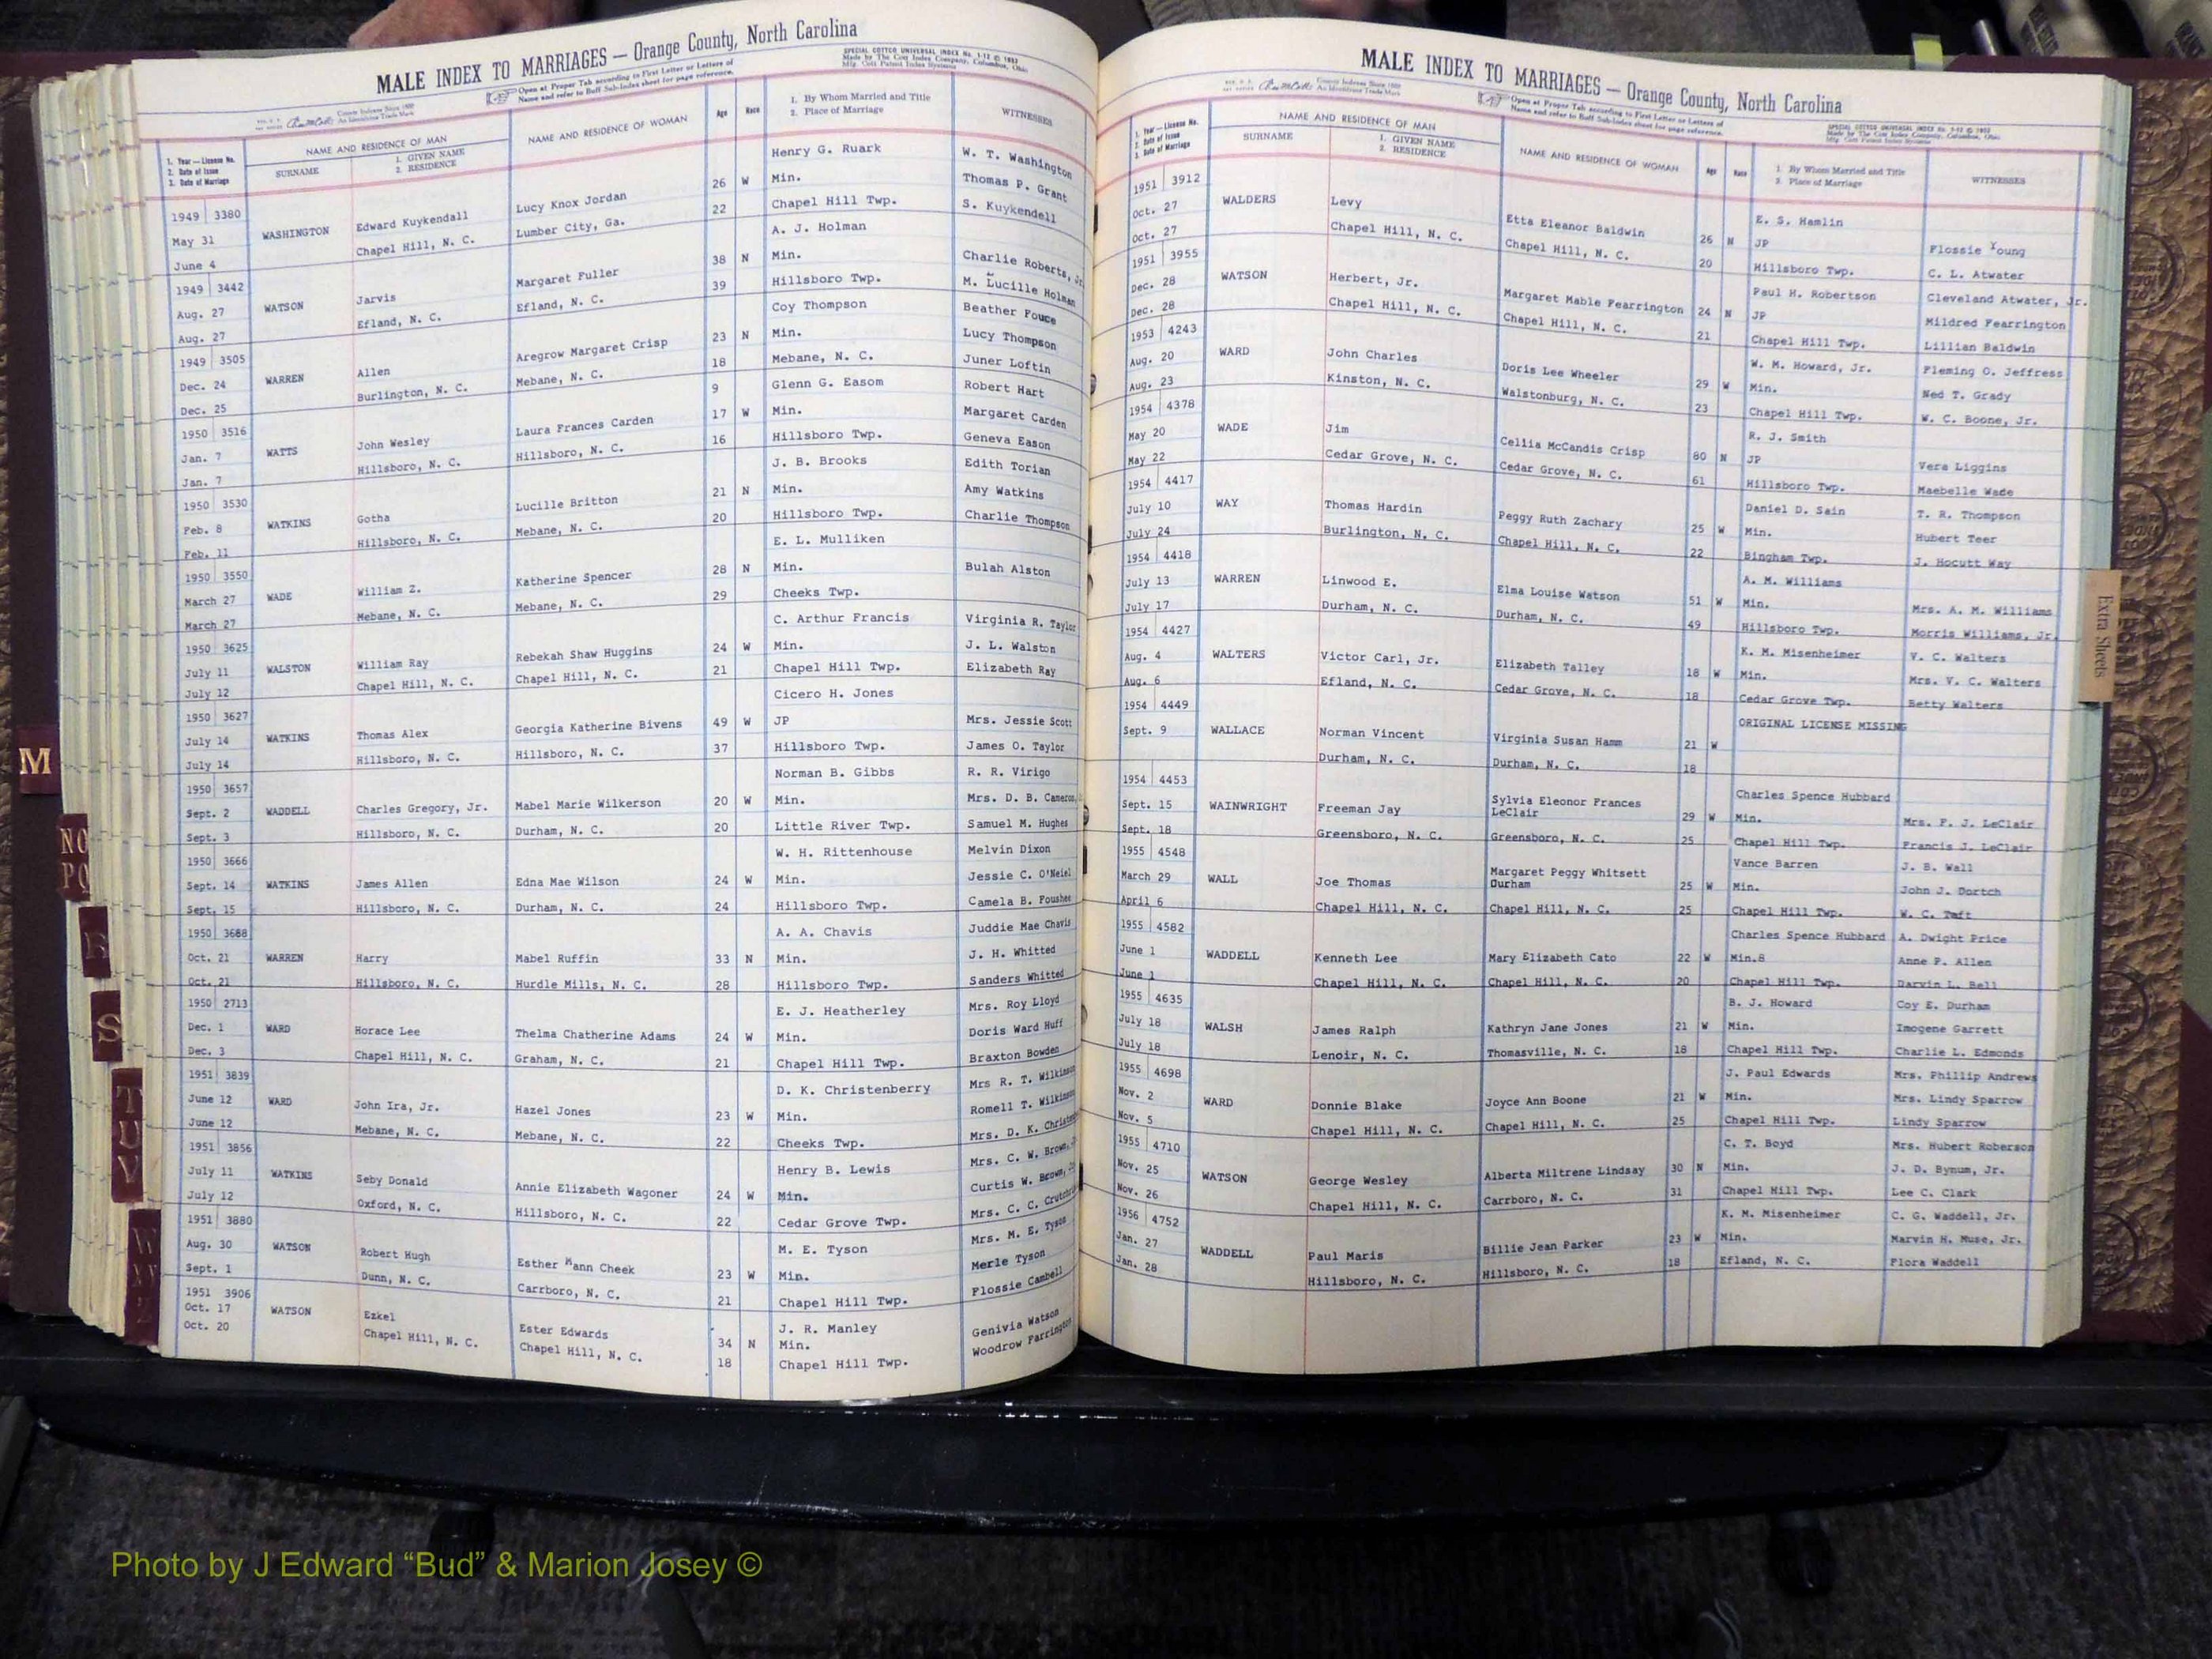 MALE INDEX TO MARRIAGES — Orange County, North Carolina
Open at Proper Tab according to First Letter or Letters of
Name and refer to Buff Sub-Index sheet for page reference.
SPECIAL COTTCO UNIVERSAL INDEX No. 1-12 © 1952
Made by The Cott Index Company, Columbus, Ohio
Mfg. Cott Patent Index Systems
County Indexes Since 1888
An Identifying Trade Mark
1. Year — License No.
2. Date of Issue
3. Date of Marriage
NAME AND RESIDENCE OF MAN
SURNAME
1. GIVEN NAME
2. RESIDENCE
NAME AND RESIDENCE OF WOMAN
Age
Race
1. By Whom Married and Title
2. Place of Marriage
WITNESSES
1949 3380 WASHINGTON Edward Kuykendall Lucy Knox Jordan 26 W Henry G. Ruark W. T. Washington
May 31 Chapel Hill, N. C. Lumber City, Ga. 22 Min. Thomas P. Grant
June 4 Chapel Hill Twp. S. Kuykendell
1949 3442 WATSON Jarvis Margaret Fuller 38 N A. J. Holman Charlie Roberts, Jr.
Aug. 27 Efland, N. C. Efland, N. C. 39 Min. M. Lucille Holman
Aug. 27 Hillsboro Twp. Beather Fouce
1949 3505 WARREN Allen Aregrow Margaret Crisp 23 N Coy Thompson Lucy Thompson
Dec. 24 Burlington, N. C. Mebane, N. C. 18 Min. Juner Loftin
Dec. 25 9 Mebane, N. C. Robert Hart
1950 3516 WATTS John Wesley Laura Frances Carden 17 W Glenn G. Easom Margaret Carden
Jan. 7 Hillsboro, N. C. Hillsboro, N. C. 16 Min. Geneva Eason
Jan. 7 Hillsboro Twp. Edith Torian
1950 3530 WATKINS Gotha Lucille Britton 21 N J. B. Brooks Amy Watkins
Feb. 8 Hillsboro, N. C. Mebane, N. C. 20 Min. Charlie Thompson
Feb. 11 Hillsboro Twp.
1950 3550 WADE William Z. Katherine Spencer 28 N E. L. Mulliken Bulah Alston
March 27 Mebane, N. C. Mebane, N. C. 29 Min.
March 27 Cheeks Twp.
1950 3625 WALSTON William Ray Rebekah Shaw Huggins 24 W C. Arthur Francis Virginia R. Taylor
July 11 Chapel Hill, N. C. Chapel Hill, N. C. 21 Min. J. L. Walston
July 12 Chapel Hill Twp. Elizabeth Ray
1950 3627 WATKINS Thomas Alex Georgia Katherine Bivens 49 W Cicero H. Jones
July 14 Hillsboro, N. C. Hillsboro, N. C. 37 JP Mrs. Jessie Scott
July 14 Hillsboro Twp. James O. Taylor
1950 3657 WADDELL Charles Gregory, Jr. Mabel Marie Wilkerson 20 W Norman B. Gibbs R. R. Virigo
Sept. 2 Hillsboro, N. C. Durham, N. C. 20 Min. Mrs. D. B. Cameron
Sept. 3 Little River Twp. Samuel M. Hughes
1950 3666 WATKINS James Allen Edna Mae Wilson 24 W W. H. Rittenhouse Melvin Dixon
Sept. 14 Hillsboro, N. C. Durham, N. C. 24 Min. Jessie C. O'Neiel
Sept. 15 Hillsboro Twp. Camela B. Foushee
1950 3688 WARREN Harry Mabel Ruffin 33 N A. A. Chavis Juddie Mae Chavis
Oct. 21 Hillsboro, N. C. Hurdle Mills, N. C. 28 Min. J. H. Whitted
Oct. 21 Hillsboro Twp. Sanders Whitted
1950 2713 WARD Horace Lee Thelma Chatherine Adams 24 W E. J. Heatherley Mrs. Roy Lloyd
Dec. 1 Chapel Hill, N. C. Graham, N. C. 21 Min. Doris Ward Huff
Dec. 3 Chapel Hill Twp. Braxton Bowden
1951 3839 WARD John Ira, Jr. Hazel Jones 23 W D. K. Christenberry Mrs R. T. Wilkinson
June 12 Mebane, N. C. Mebane, N. C. 22 Min. Romell T. Wilkinson
June 12 Cheeks Twp. Mrs. D. K.
1951 3856 WATKINS Seby Donald Annie Elizabeth Wagoner 24 W Henry B. Lewis Mrs. C. W. Brown, Jr.
July 11 Oxford, N. C. Hillsboro, N. C. 22 Min. Curtis W. Brown, Jr.
July 12 Cedar Grove Twp. Mrs. C. C.
1951 3880 WATSON Robert Hugh Esther Mann Cheek 23 W M. E. Tyson Mrs. M. E. Tyson
Aug. 30 Dunn, N. C. Carrboro, N. C. 21 Min. Merle Tyson
Sept. 1 Chapel Hill Twp. Flossie Cambell
1951 3906 WATSON Ezkel Ester Edwards 34 N J. R. Manley Genivia Watson
Oct. 17 Chapel Hill, N. C. Chapel Hill, N. C. 18 Min. Woodrow Farrington
Oct. 20 Chapel Hill Twp.
MALE INDEX TO MARRIAGES — Orange County, North Carolina
County Indexes Since 1888
An Identifying Trade Mark
Open at Proper Tab according to First Letter or Letters of
Name and refer to Buff Sub-Index sheet for page reference.
SPECIAL COTTCO UNIVERSAL INDEX No. 1-12 © 1952
Made by The Cott Index Company, Columbus, Ohio
Mfg. Cott Patent Index Systems
1. Year — License No.
2. Date of Issue
3. Date of Marriage
NAME AND RESIDENCE OF MAN
SURNAME
1. GIVEN NAME
2. RESIDENCE
NAME AND RESIDENCE OF WOMAN
Age
Race
1. By Whom Married and Title
2. Place of Marriage
WITNESSES
1951 3912 WALDERS Levy Etta Eleanor Baldwin 26 N E. S. Hamlin
Oct. 27 Chapel Hill, N. C. Chapel Hill, N. C. 20 JP Flossie Young
Oct. 27 Hillsboro Twp. C. L. Atwater
1951 3955 WATSON Herbert, Jr. Margaret Mable Fearrington 24 N Paul H. Robertson Cleveland Atwater, Jr.
Dec. 28 Chapel Hill, N. C. Chapel Hill, N. C. 21 JP Mildred Fearrington
Dec. 28 Chapel Hill Twp. Lillian Baldwin
1953 4243 WARD John Charles Doris Lee Wheeler 29 W W. M. Howard, Jr. Fleming O. Jeffress
Aug. 20 Kinston, N. C. Walstonburg, N. C. 23 Min. Ned T. Grady
Aug. 23 Chapel Hill Twp. W. C. Boone, Jr.
1954 4378 WADE Jim Cellia McCandis Crisp 80 N R. J. Smith
May 20 Cedar Grove, N. C. Cedar Grove, N. C. 61 JP Vera Liggins
May 22 Hillsboro Twp. Maebelle Wade
1954 4417 WAY Thomas Hardin Peggy Ruth Zachary 25 W Daniel D. Sain T. R. Thompson
July 10 Burlington, N. C. Chapel Hill, N. C. 22 Min. Hubert Teer
July 24 Bingham Twp. J. Hocutt Way
1954 4418 WARREN Linwood E. Elma Louise Watson 51 W A. M. Williams
July 13 Durham, N. C. Durham, N. C. 49 Min. Mrs. A. M. Williams
July 17 Hillsboro Twp. Morris Williams, Jr.
1954 4427 WALTERS Victor Carl, Jr. Elizabeth Talley 18 W K. M. Misenheimer V. C. Walters
Aug. 4 Efland, N. C. Cedar Grove, N. C. 18 Min. Mrs. V. C. Walters
Aug. 6 Cedar Grove Twp. Betty Walters
1954 4449 WALLACE Norman Vincent Virginia Susan Hamm 21 W ORIGINAL LICENSE MISSING
Sept. 9 Durham, N. C. Durham, N. C. 18
1954 4453 WAINWRIGHT Freeman Jay Sylvia Eleonor Frances LeClair 29 W Charles Spence Hubbard
Sept. 15 Greensboro, N. C. Greensboro, N. C. 25 Min. Mrs. F. J. LeClair
Sept. 18 Chapel Hill Twp. Francis J. LeClair
1955 4548 WALL Joe Thomas Margaret Peggy Whitsett Durham 25 W Vance Barren J. B. Wall
March 29 Chapel Hill, N. C. Chapel Hill, N. C. 25 Min. John J. Dortch
April 6 Chapel Hill Twp. W. C. Taft
1955 4582 WADDELL Kenneth Lee Mary Elizabeth Cato 22 W Charles Spence Hubbard A. Dwight Price
June 1 Chapel Hill, N. C. Chapel Hill, N. C. 20 Min.8 Anne P. Allen
June 1 Chapel Hill Twp. Darvin L. Bell
1955 4635 WALSH James Ralph Kathryn Jane Jones 21 W B. J. Howard Coy E. Durham
July 18 Lenoir, N. C. Thomasville, N. C. 18 Min. Imogene Garrett
July 18 Chapel Hill Twp. Charlie L. Edmonds
1955 4698 WARD Donnie Blake Joyce Ann Boone 21 W J. Paul Edwards Mrs. Phillip Andrews
Nov. 2 Chapel Hill, N. C. Chapel Hill, N. C. 25 Min. Mrs. Lindy Sparrow
Nov. 5 Chapel Hill Twp. Lindy Sparrow
1955 4710 WATSON George Wesley Alberta Miltrene Lindsay 30 N C. T. Boyd Mrs. Hubert Roberson
Nov. 25 Chapel Hill, N. C. Carrboro, N. C. 31 Min. J. D. Bynum, Jr.
Nov. 26 Chapel Hill Twp. Lee C. Clark
1956 4752 WADDELL Paul Maris Billie Jean Parker 23 W K. M. Misenheimer C. G. Waddell, Jr.
Jan. 27 Hillsboro, N. C. Hillsboro, N. C. 18 Min. Marvin H. Muse, Jr.
Jan. 28 Efland, N. C. Flora Waddell
Extra Sheets
M
NO
PQ
R
S
T
U
V
W
Photo by J Edward “Bud” & Marion Josey ©